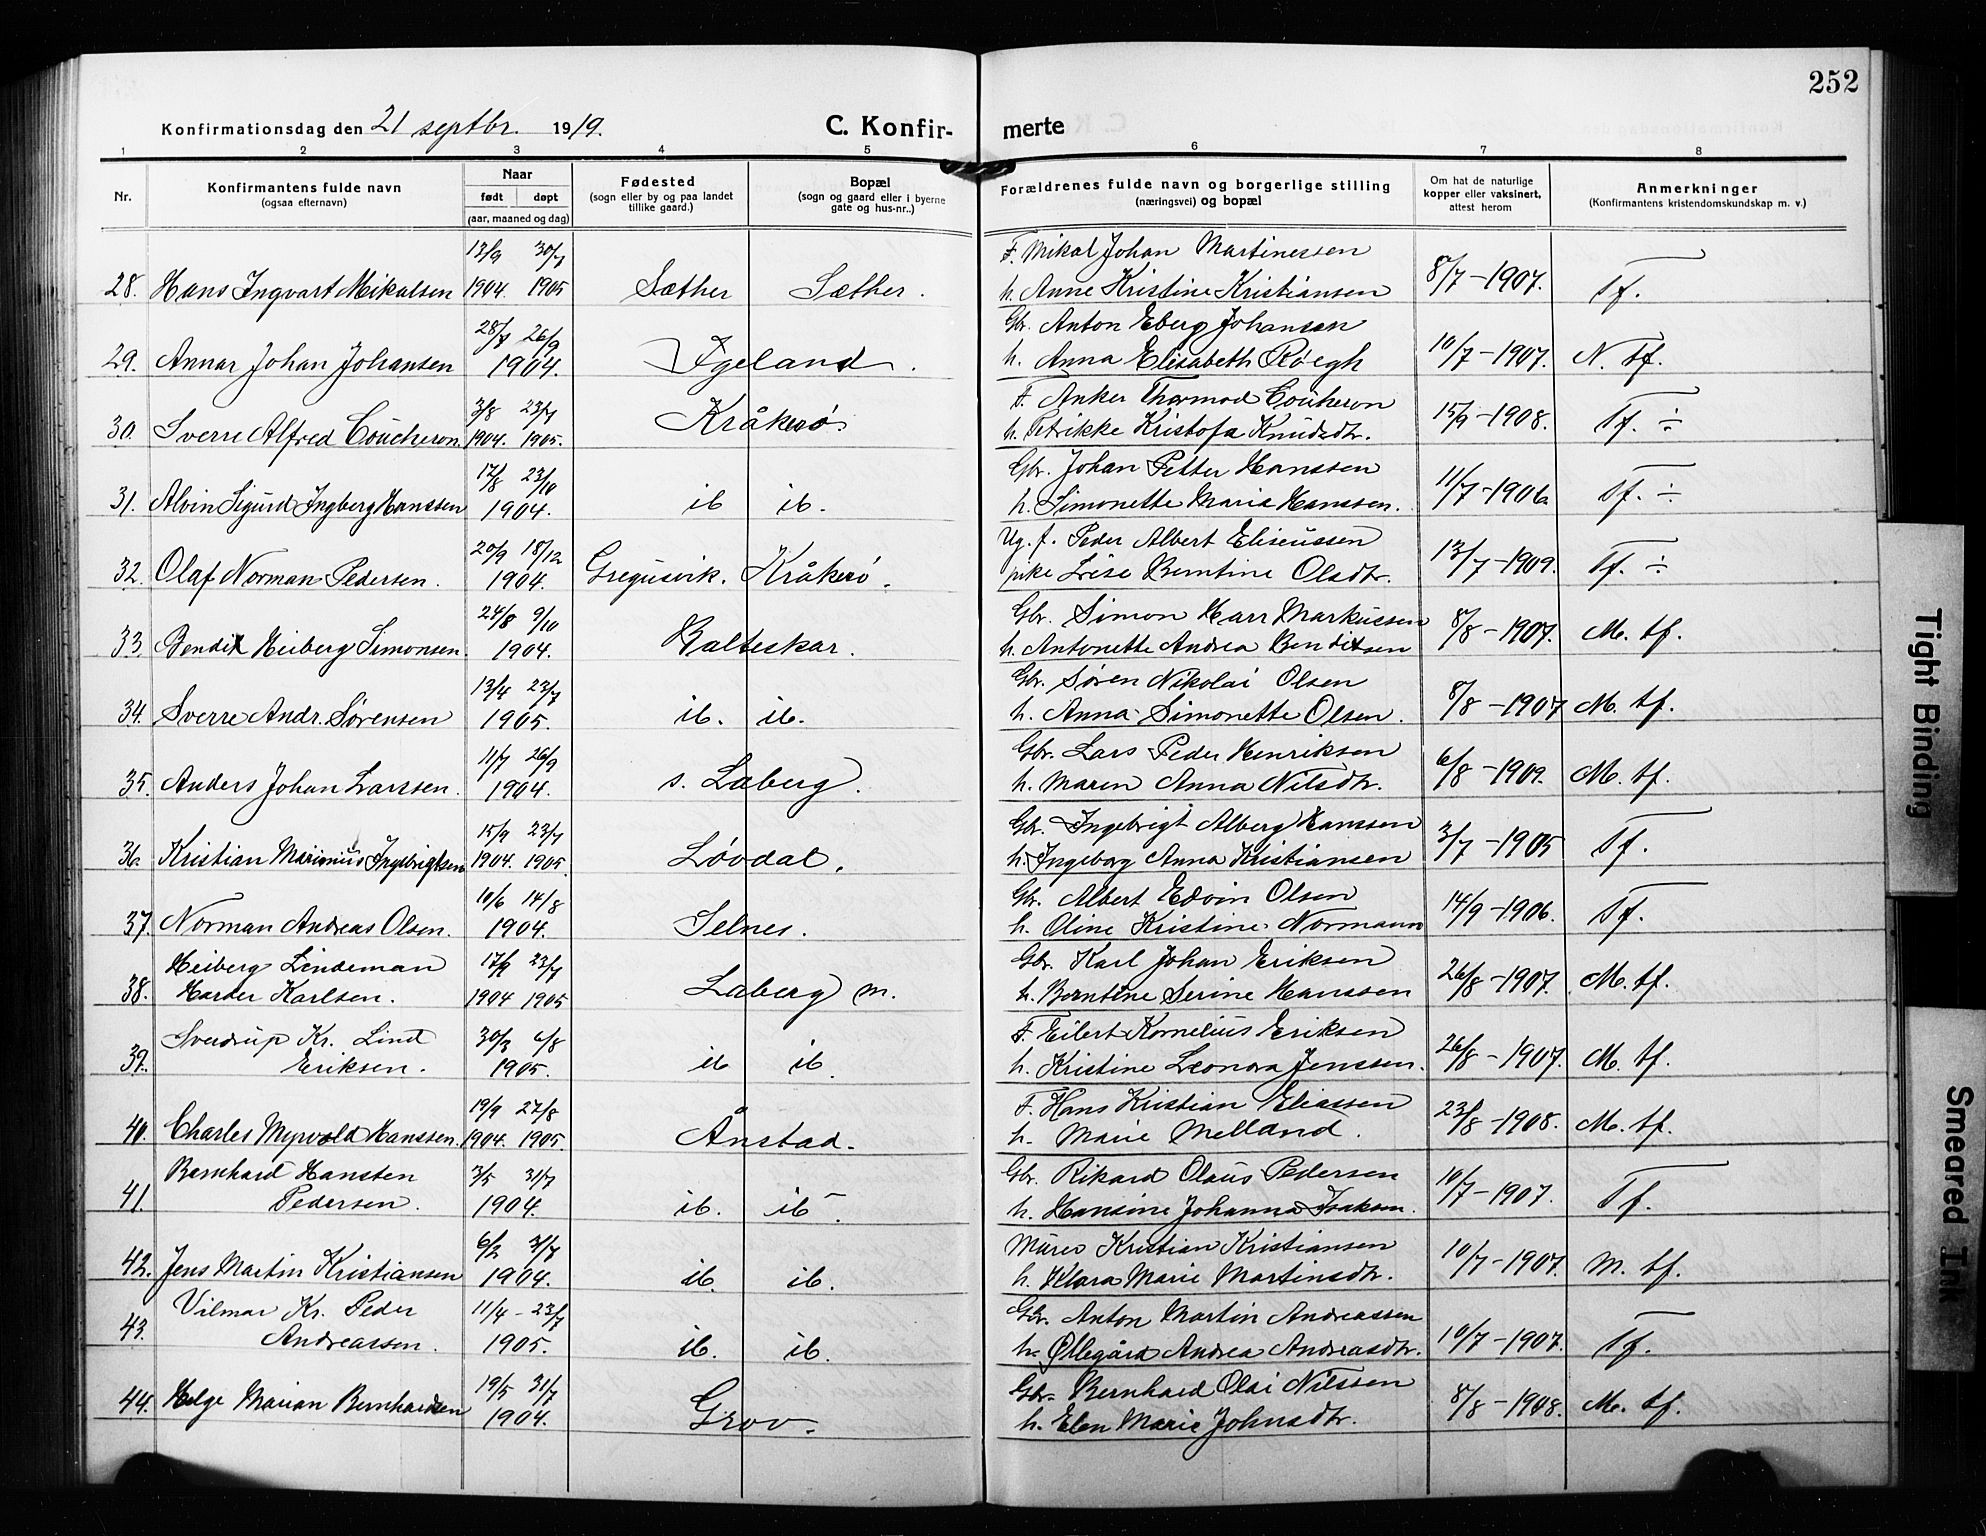 252
Konfirmationsdag den 21 septbr. 1919. C. Konfir- merte
1 2 3 4 5 6 7 8
Nr. Konfirmantens fulde navn (ogsaa efternavn) Naar født døpt (aar, maaned og dag) Fødested (sogn eller by og paa landet tillike gaard.) Bopæl (sogn og gaard eller i byerne gate og hus-nr.) Forældrenes fulde navn og borgerlige stilling (næringsvei) og bopæl Om hat de naturlige kopper eller vaksinert, attest herom Anmerkninger (Konfirmantens kristendomskundskap m. v.)
13/9 30/7 F. Mikal Johan Martinessen
28. Hans Ingvart Mikalsen 1904. 1905 Sæther Sæther. h. Anne Kristine Kristiansen 8/7-1907. Tf.
28/7 26/9 Gbr. Anton Eberg Johansen
29. Annar Johan Johansen 1904. Igeland. h. Anna Elisabeth Røegh 10/7-1907. N. tf.
3/8 23/7 Kråkerø. F. Anker Thormod Coucheron
30. Sverre Alfred Coucheron. 1904. 1905. h. Petrikke Kristofa Knudsdtr. 15/9-1908. Tf. ÷
17/8 23/10 Gbr. Johan Petter Hanssen
31. Alvin Sigurd Ingberg Hanssen 1904. ib ib. h. Simonette Marie Hanssen. 11/7-1906. Tf. ÷
20/9 18/12 Ug. f. Peder Albert Eliseussen
32. Olaf Norman Pedersen. 1904. Gregusvik. Kråkerø. pike Lrise Berntine Olsdtr. 13/7-1909. Tf. ÷
24/8 9/10 Gbr. Simon Harr Markussen
33. Bendix Heiberg Simonsen. 1904. Balteskar. h. Antonette Andrea Bendixsen 8/8-1907. M. tf.
13/4 23/7 Gbr. Søren Nikolai Olsen
34. Sverre Andr. Sørensen 1905. ib. ib. h. Anna Simonette Olsen. 8/8-1907 M. tf.
11/7 26/9 Gbr. Lars Peder Henriksen
35. Anders Johan Larssen. 1904. s. Laberg. h. Maren Anna Nilsdtr. 6/8-1909. M. tf.
15/9 23/7 Gbr. Ingebrigt Alberg Hanssen
36. Kristian Marinius Ingebrigtsen 1904. 1905. Løvdal. h. Ingeborg Anna Kristiansen 3/7-1905 Tf.
10/6 14/8 Gbr. Albert Edvin Olsen
37. Norman Andreas Olsen. 1904. Selnes. h. Oline Kristine Normann 14/9-1906. Tf.
Heiberg Lindeman 17/9 23/7 Gbr. Karl Johan Eriksen
38. Harder Karlsen. 1904 1905 Laberg m. h. Berntine Serine Hanssen 26/8-1907. M. tf.
Sverdrup Kr. Lind 30/3 6/8 F. Eilert Kornelius Eriksen
39. Eriksen. 1905. ib ib. h. Kristine Leonora Jenssen. 26/8-1907. M. tf.
19/9 27/8 F. Hans Kristian Eliassen
40. Charles Myrvold Hanssen. 1904. 1905. Ånstad. h. Marie Melland. 23/8-1908. M. tf.
Bernhard Hansten 3/5 31/7 Gbr. Rikard Olaus Pedersen
41. Pedersen. 1904. ib. ib. h. Hansine Johanna Isaksen. 10/7-1907. Tf.
6/2 31/7 Murer Kristian Kristiansen
42. Jens Martin Kristiansen 1904. ib. ib. h. Klara Marie Martinsdtr. 10/7-1907. M. tf.
Vilmar Kr. Peder 11/4-23/7 Gbr. Anton Martin Andreassen
43. Andreassen. 1905. ib. ib. h. Øllegård Andrea Andreasdtr. 10/7-1907. Tf.
19/5 31/7 Gbr. Bernhard Olai Nilssen
44. Helge Marian Bernhardsen 1904. Grov. h. Elen Marie Johnsdtr. 8/8-1908. M. tf.
Tight Binding
Smeared Ink